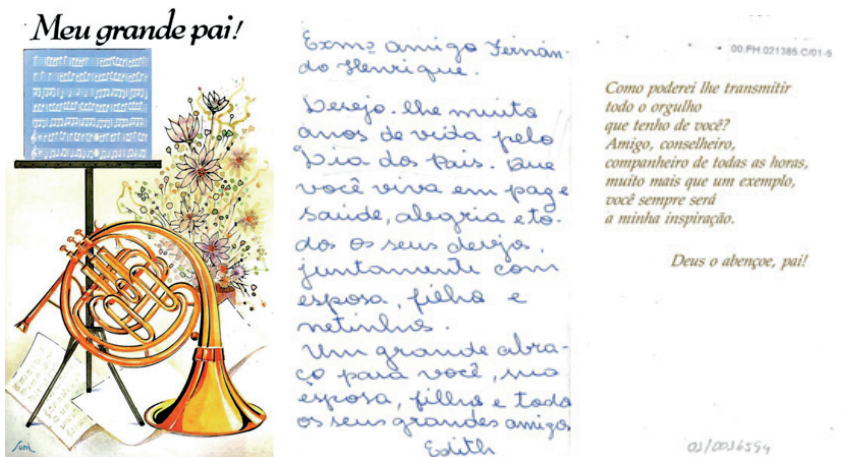 Meu grande pai!
Exmº amigo Fernan-
do Henrique.
Desejo-lhe muito
anos de vida pelo
"Dia dos Pais. Que
você viva em paz e
saúde, alegria e to-
dos os seus desejo,
juntamente com
esposa, filha e
netinhos.
Um grande abra-
ço para você, sua
esposa, filha e todo
os seus grandes amigo
Edith
00.FH.021385.C/01-6
Como poderei lhe transmitir
todo o orgulho
que tenho de você?
Amigo, conselheiro,
companheiro de todas as horas,
muito mais que um exemplo,
você sempre será
a minha inspiração.
Deus o abençoe, pai!
01/0036594